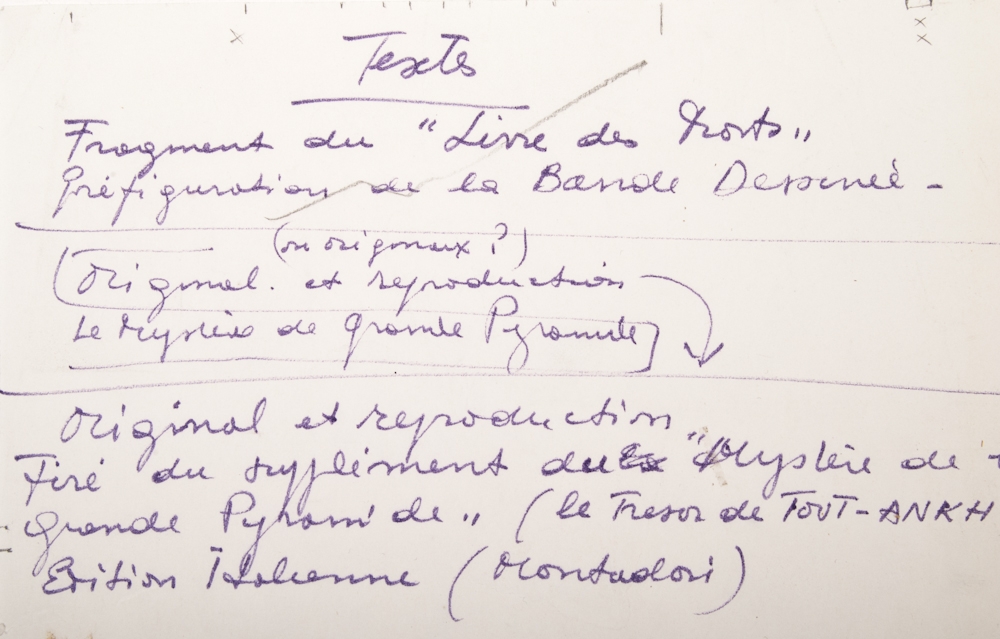 Textes
Fragment du "Livre des Morts"
Préfiguration de la Bande Dessinée -
(ou originaux ?)
(Original. et reproduction
Le Mystère de grande Pyramide]
Original et reproduction.
Tiré du supplément du "Mystère de
grande Pyramide" (le Tresor de TOUT-ANKH
Edition Italienne (Montadori)